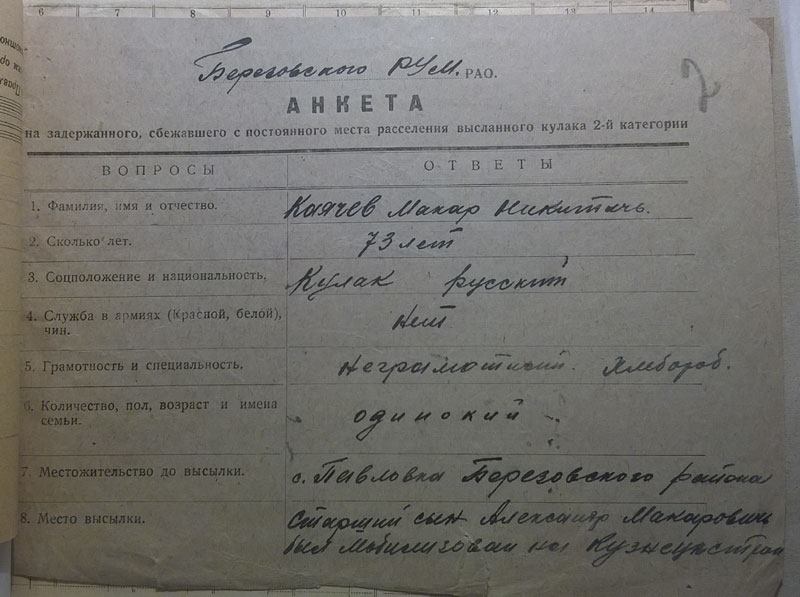 6 7 8 9 10 11 12 13 14
Березовского РУМ. РАО.
2
АНКЕТА
на задержанного, сбежавшего с постоянного места расселения высланного кулака 2-й категории
ВОПРОСЫ ОТВЕТЫ
1. Фамилия, имя и отчество. Каячев Макар Никитичь.
2. Сколько лет. 73 лет
3. Соцположение и национальность. Кулак русский
4. Служба в армиях (Красной, белой), чин. Нет
5. Грамотность и специальность. Неграмотный. Хлебороб.
6. Количество, пол, возраст и имена семьи. одинокий
7. Местожительство до высылки. с. Павловка Березовского района
8. Место высылки. Старший сын Александр Макаровичь
был мобилизован на Кузнецкстрой